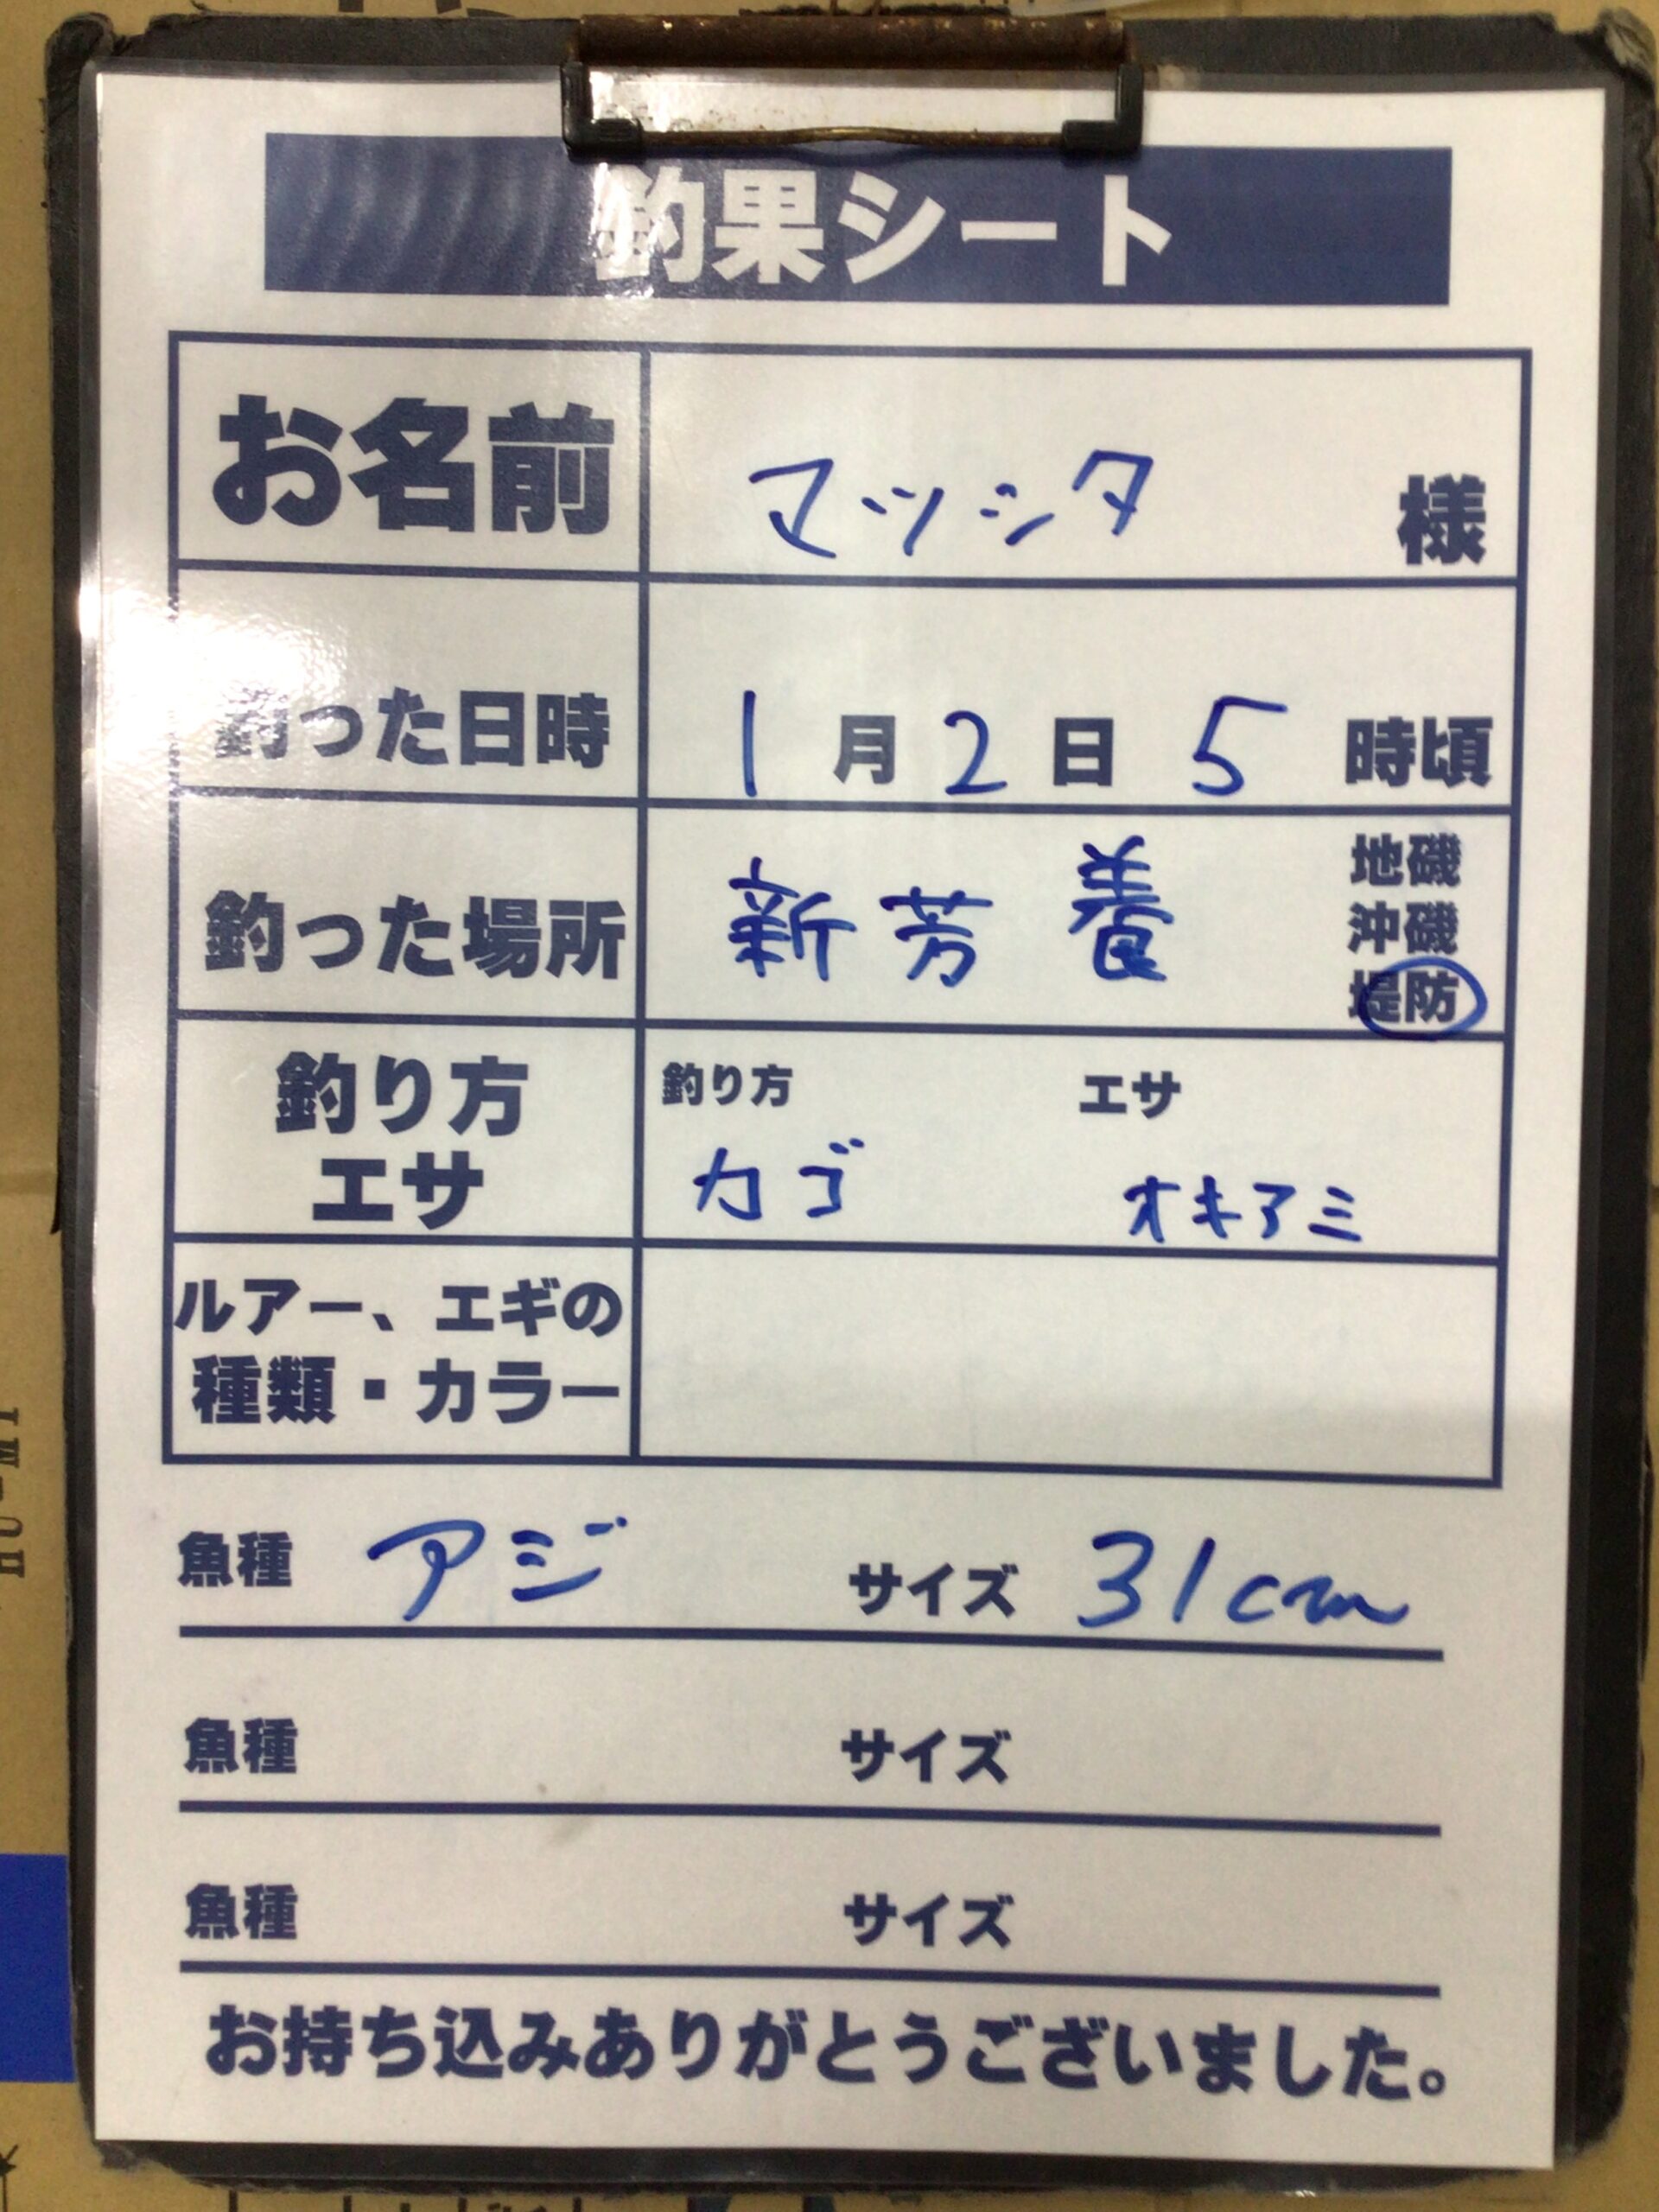 釣果シート
お名前 マツシタ 様
釣った日時 1月2日 5時頃
釣った場所 新芳養 地磯
沖磯
堤防
釣り方 エサ 釣り方 エサ
カゴ オキアミ
ルアー、エギの
種類・カラー
魚種 アジ サイズ 31cm
魚種 サイズ
魚種 サイズ
お持ち込みありがとうございました。